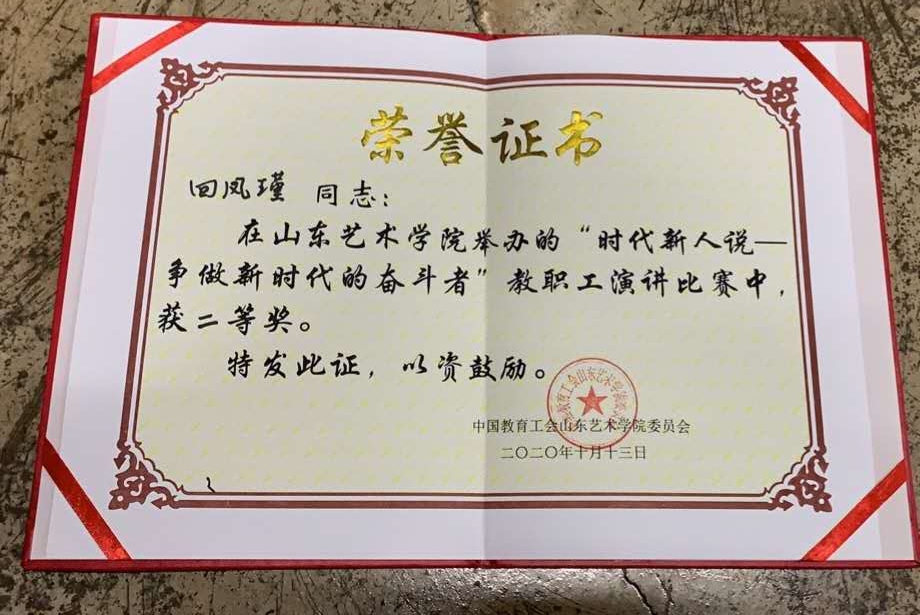 荣誉证书
回凤瑾 同志：
在山东艺术学院举办的“时代新人说—
争做新时代的奋斗者”教职工演讲比赛中，
获二等奖。
特发此证，以资鼓励。
中国教育工会山东艺术学院委员会
二〇二〇年十月十三日